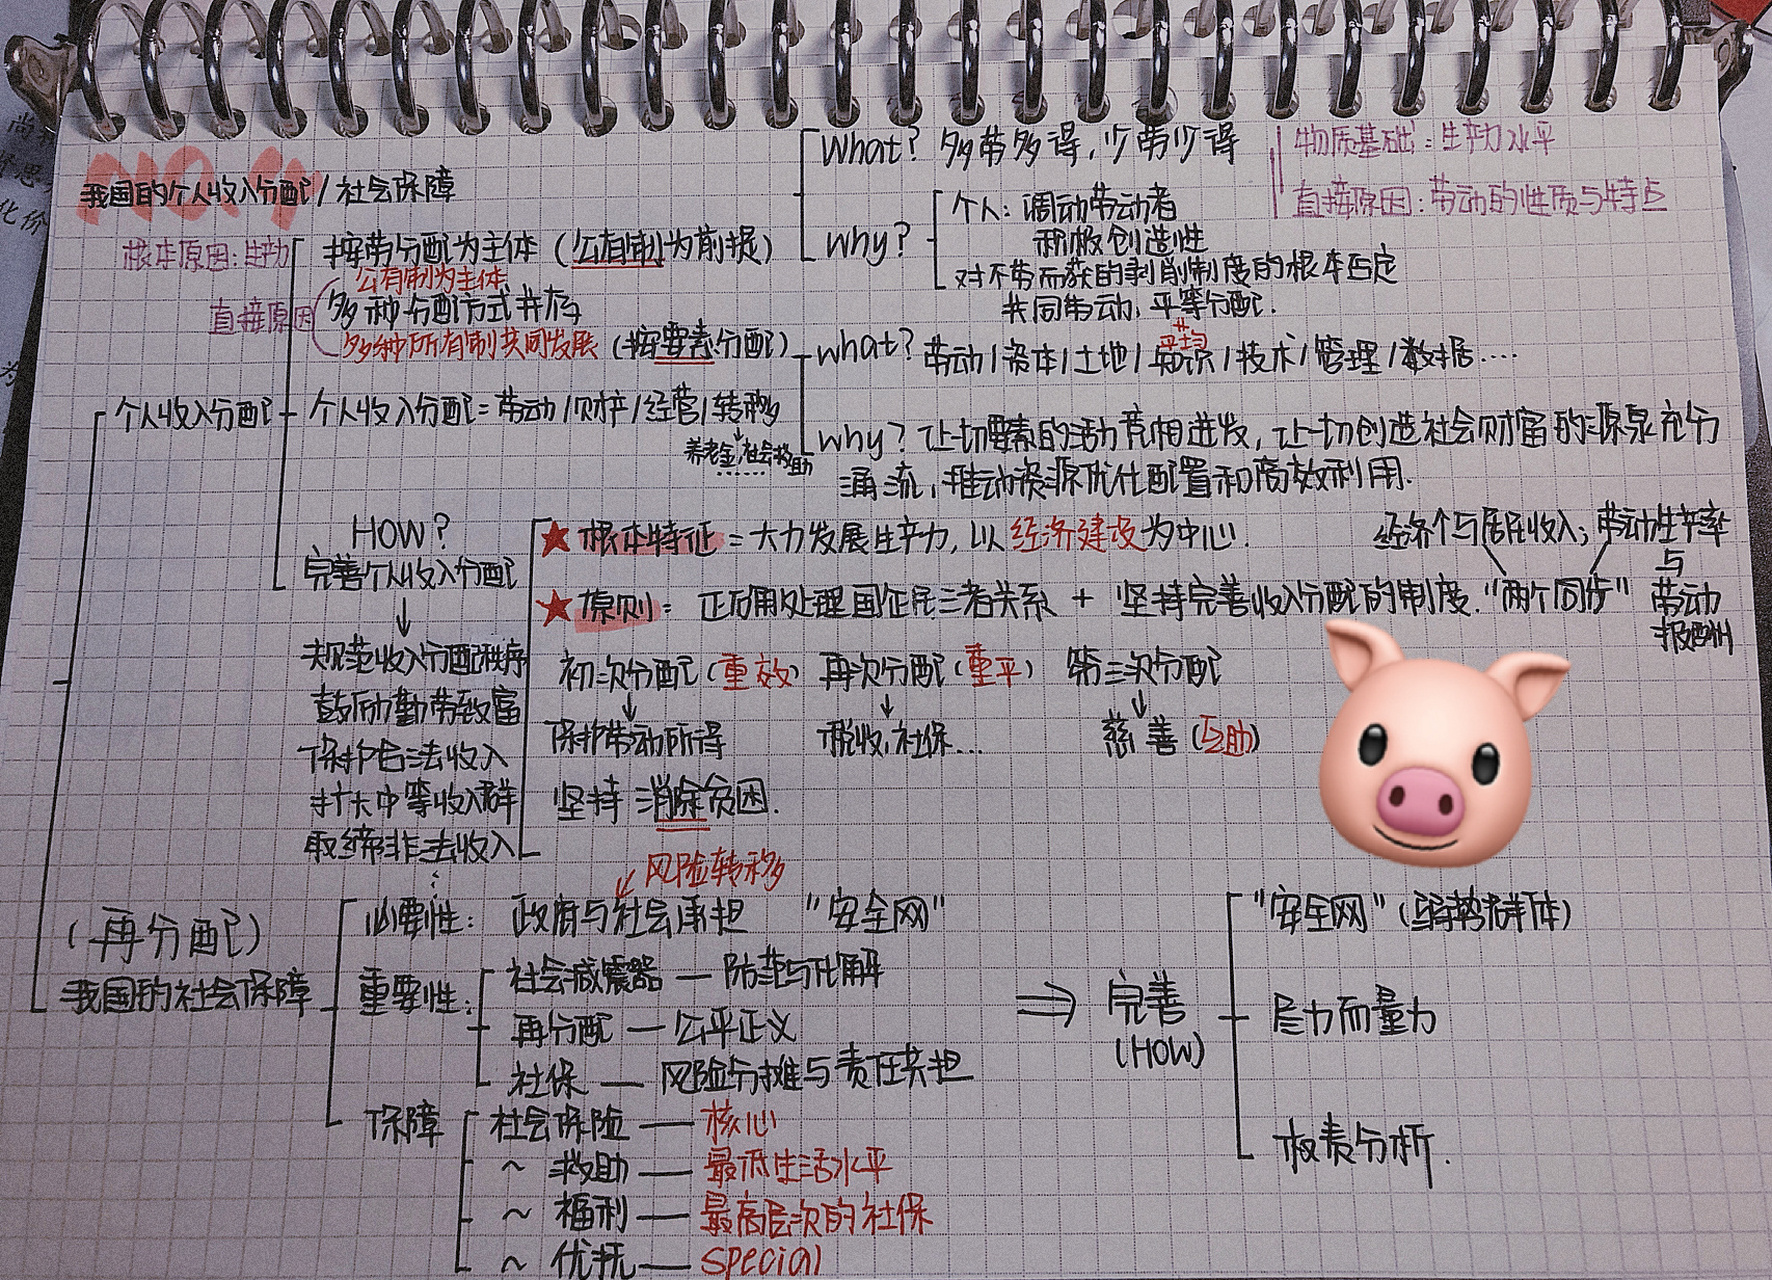 NO.4
我国的个人收入分配/社会保障
What? 多劳多得,少劳少得
物质基础:生产力水平
直接原因:劳动的性质与特点
why?
个人:调动劳动者
积极创造性
对不劳而获的剥削制度的根本否定
共同劳动,平等分配.
≠
平均
根本原因:生产力
按劳分配为主体(公有制为前提)
公有制为主体
直接原因
多种分配方式并存
多种所有制共同发展(按要素分配)
what? 劳动/资本/土地/知识/技术/管理/数据····
个人收入分配
个人收入分配=劳动/财产/经营/转移
养老金,社会救助
······
why? 让一切要素的活力竞相迸发,让一切创造社会财富的源泉充分
涌流,推动资源优化配置和高效利用.
HOW?
完善个人收入分配
规范收入分配秩序
鼓励勤劳致富
保护合法收入
扩大中等收入群
取缔非法收入
★根本特征=大力发展生产力,以经济建设为中心.
★原则:正确处理国企民三者关系 + 坚持完善收入分配的制度."两个同步"
经济个与居民收入;劳动生产率
与
劳动
报酬
初次分配(重效) 再次分配(重平) 第三次分配
保护劳动所得 税收,社保... 慈善(互助)
坚持消除贫困.
风险转移
(再分配)
我国的社会保障
必要性:政府与社会承担 "安全网"
重要性:
社会减震器—防范与化解
再分配—公平正义
社保—风险分摊与责任共担
保障
社会保险—核心
~救助—最低生活水平
~福利—最高层次的社保
~优抚—special
⇒ 完善
(HOW)
"安全网"(弱势群体)
尽力而量力
权责分析.